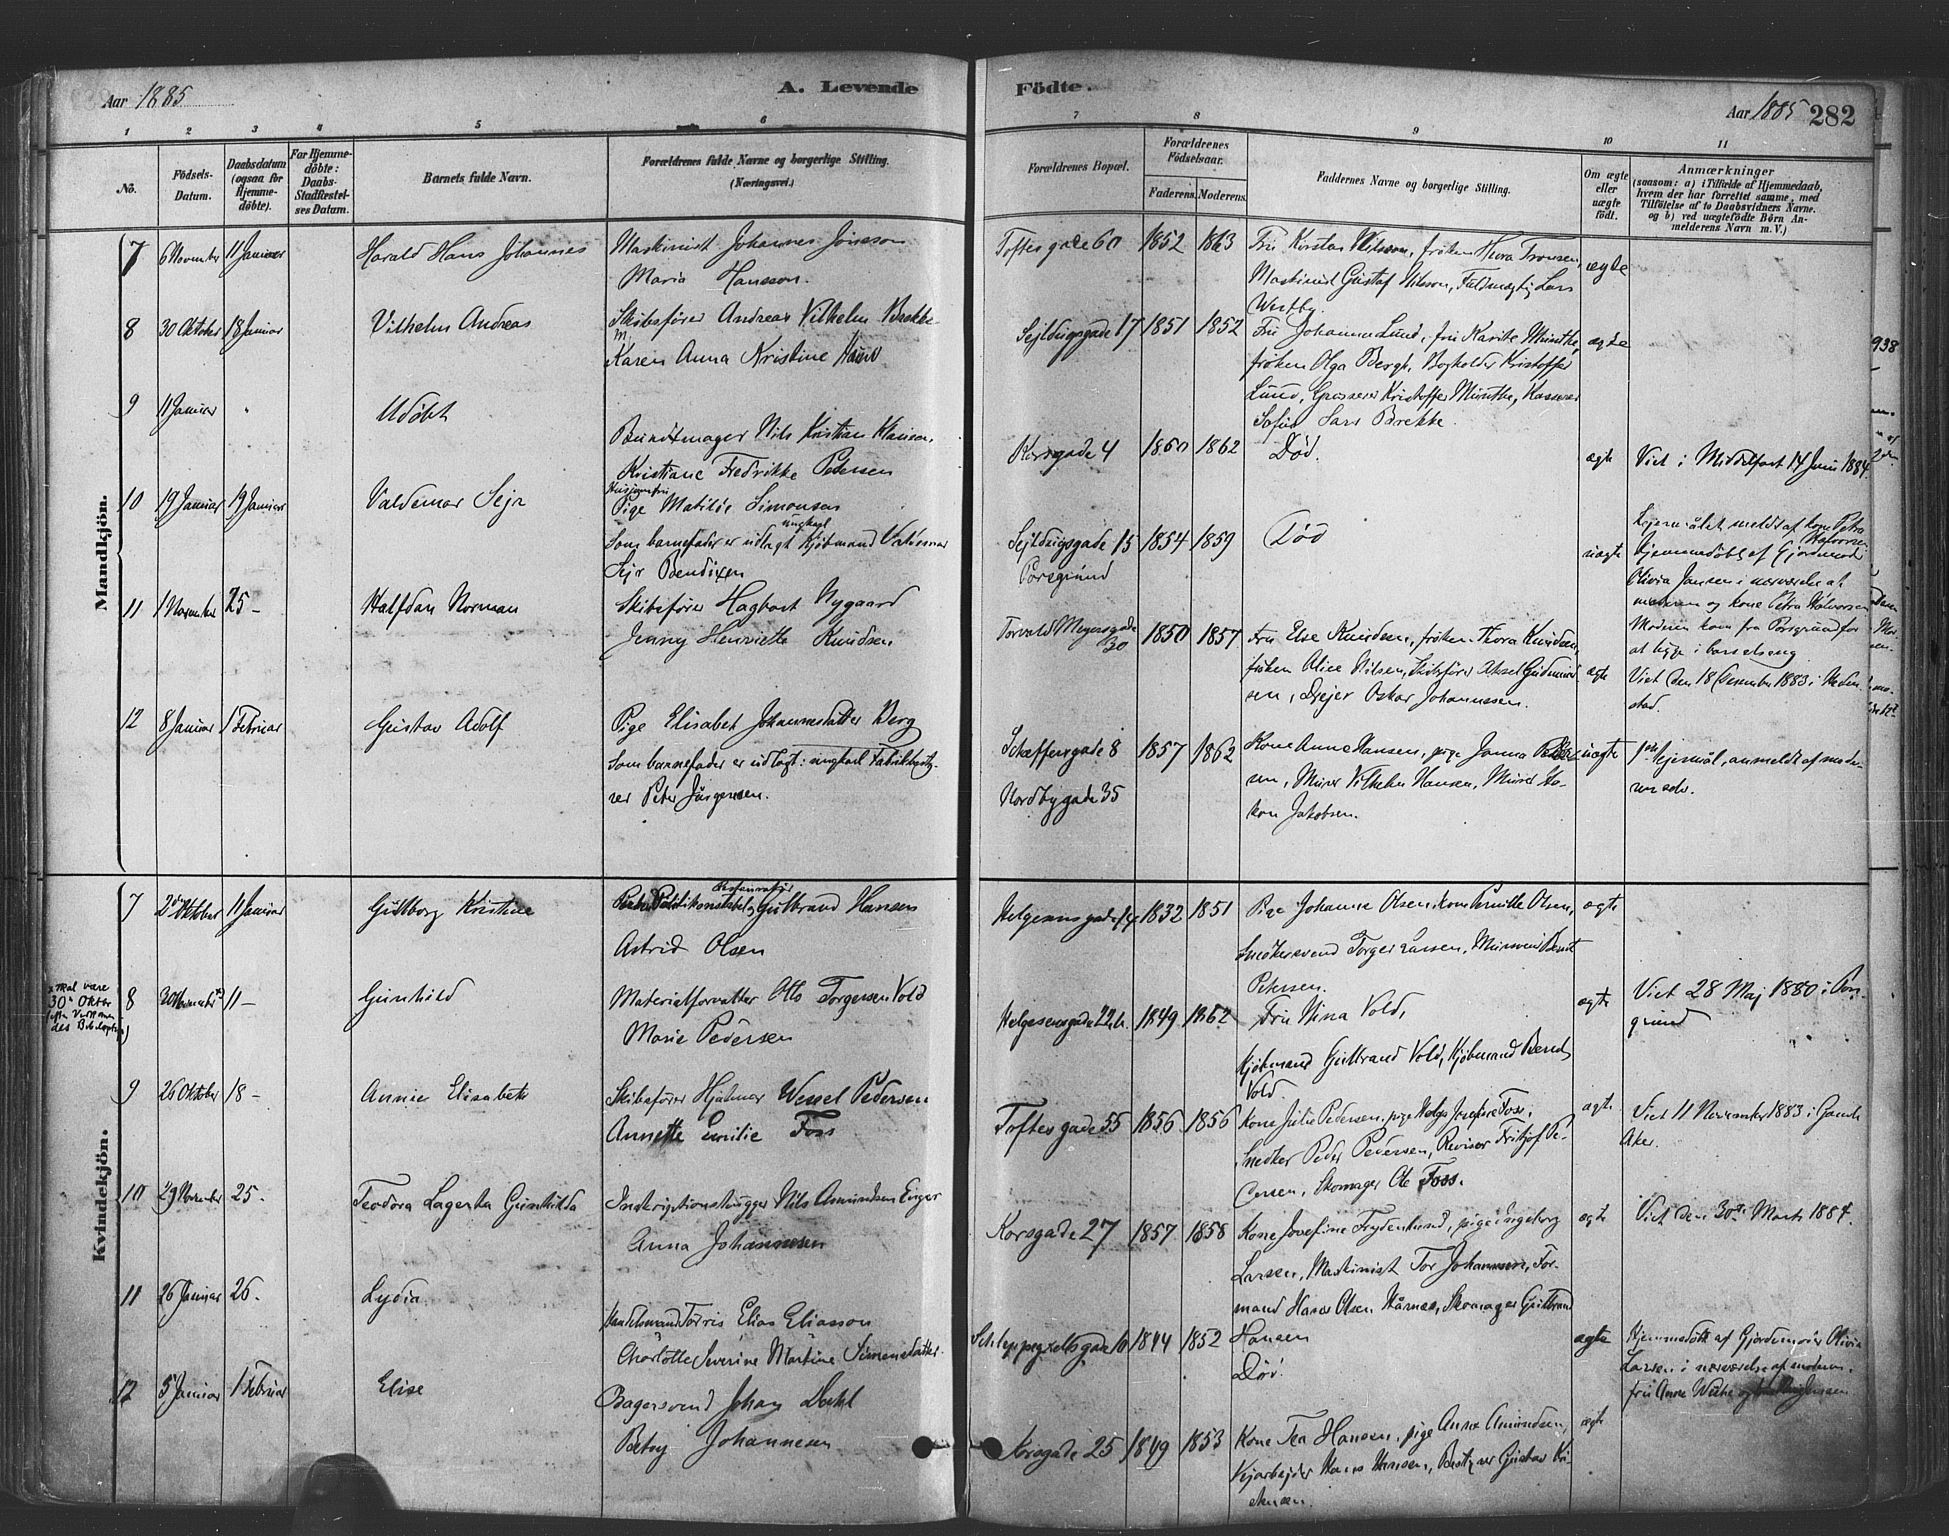 Aar 1885
A. Levende
Födte.
Aar 1885 282
1 2 3 4 5 6 7 8 9 10 11
No.
Födsels-
Datum.
Daabsdatum
(ogsaa for
Hjemme-
döbte).
Far Hjemme-
döbte:
Daabs-
Stadfæstel-
ses Datum.
Barnets fulde Navn.
Forældrenes fulde Navne og borgerlige Stilling.
(Næringsvei.)
Forældrenes Bopæl.
Forældrenes
Födselsaar.
Faderens. Moderens.
Faddernes Navne og borgerlige Stilling.
Om ægte
eller
uægte
födt.
Anmærkninger
(saasom: a) i Tilfælde af Hjemmedaab,
hvem der har forrettet samme, med
Tilföielse af to Daabsvidners Navne.
og b) ved uægtefödte Börn An-
melderens Navn m. V.)
Mandkjön.
7 6 November 11 Januar Harald Hans Johannes Maskinist Johannes Jonsson
Maria Hansson.
Toftes gade 60 1852 1863 Fru Kirsten Nilsson, fröken Thora Tronsen,
Maskinist Gustaf Nilsson, Fuldmægtig Lars
Westby. ægte
8 30 Oktober 18 Januar Vilhelm Andreas Skibsförer Andreas Vilhelm Brekke
Karen Anna Kristine
Sejldugsgade 17 1851 1852 Fru Johanne Lund, fru Karite Minthe,
fröken Olga Bergh, Bogholder Kristoffer
Lund, Grosserer Kristoffer Minthe, Kasserer
Sofus Lars Brekke. ægte
9 11 Januar Udöbt
Bundtmager Nils Kristian Hansen,
Kristiane Fredrikke Petersen
Korsgade 4 1860 1862 Död. ægte Viet i Middelfart 14 Juni 1884.
10 19 Januar 19 Januar Valdemar Sejr Pige Matilde Simonsen
Som barnefader er udlagt ungkarl Kjöbmand Valdemar
Sejr Bendixen
Sejldugsgade 15 1854 1859 Död uægte
Porsgrund
Lejermålet meldt af kone Petra
Halvorsen
Hjemmedöbt af Gjordemoder
Olivia Jansen i nærværelse af
moderen og kone Petra Halvorsen
Moderen kom fra Porsgrund for
at ligge i barselseng
11 1 November 25 - Halfdan Norman Skibsförer Hagbart Nygaard
Jenny Henriette Knudsen
Torvald Meyersgade
30 1850 1857 Fru Else Knudsen, fröken Thora Knudsen,
fröken Alice Nilsen, Skibsförer Aksel Gudmund-
sen, Drejer Oskar Johannessen. ægte
Viet den 18 December 1883 i
12 8 Januar 1 Februar Gustav Adolf Pige Elisabet Johannesdatter Berg
Som barnefader er udlagt: ungkarl Fabrikbesty-
rer Peter Jürgensen.
Schæffersgade 8 1857 1862 Kone Anne Hansen, pige Janna Peder-
sen, Murer Vilhelm Hansen, Murer Ha-
kon Jakobsen. uægte
Nordbygade 35
1ste lejermål, anmeldt af mode-
ren selv.
Kvindekjön.
7 2 Oktober 11 Januar Gulborg Kristine Politikonstabel Gulbrand Hansen
Astrid Olsen
Helgesensgade 14 1832 1851 Pige Johanne Olsen, kone Pernille Olsen,
Snedkersvend Torger Larsen, Mursvend Bernt
Petersen. ægte
x skal være
30te Oktbr
8 30 November 11 - Gunhild Materialforvalter Otto Torgersen Vold
Marie Pedersen
Helgesensgade 22b. 1849 1862 Fru Nina Vold,
Kjöbmand Gulbrand Vold, Kjöbmand Bernt
Vold. ægte
Viet 28 Maj 1880 i Pors-
grund
9 26 Oktober 18 - Annie Elisabeth Skibsförer Hjalmar Wessel Pedersen
Annette Emilie Foss
Toftes gade 55 1856 1856 Kone Julie Pedersen, pige Helga Josefine Foss,
Snedker Peder Pedersen, Revisor Fritjof Pe-
dersen, Skomager Ole Foss. ægte
Viet 11 November 1883 i Gamle
Aker.
10 29 November 25 - Teodora Lagerta Gunhilda Inskriptionshugger Nils Amundsen
Anna Johannesen
Korsgade 27 1857 1858 Kone Josefine Frydenlund, pige Ingeborg
Larsen, Maskinist Tor Johannesen, For-
mand Hans Olsen Skomager Gulbrand
Hansen ægte
Viet den 30te Marts 1884.
11 26 Januar 26 - Lydia Handelsmand Tarris Elias Eliasson
Charlotte Severine Martine Simensdatter
Schleppegrellsgade 10 1844 1852 Död. ægte
Hjemmedöbt af Gjordemoder Olivia
Larsen i nærværelse af moderen,
fru Anne
12 5 Januar 1 Februar Elise Bagersvend Johan Dahl
Betsy Johannesen
Korsgade 25 1849 1853 Kone Tea Hansen, pige Anne Amundsen,
Vejarbejder Hans Hansen, Gustav Kri-
stensen. ægte